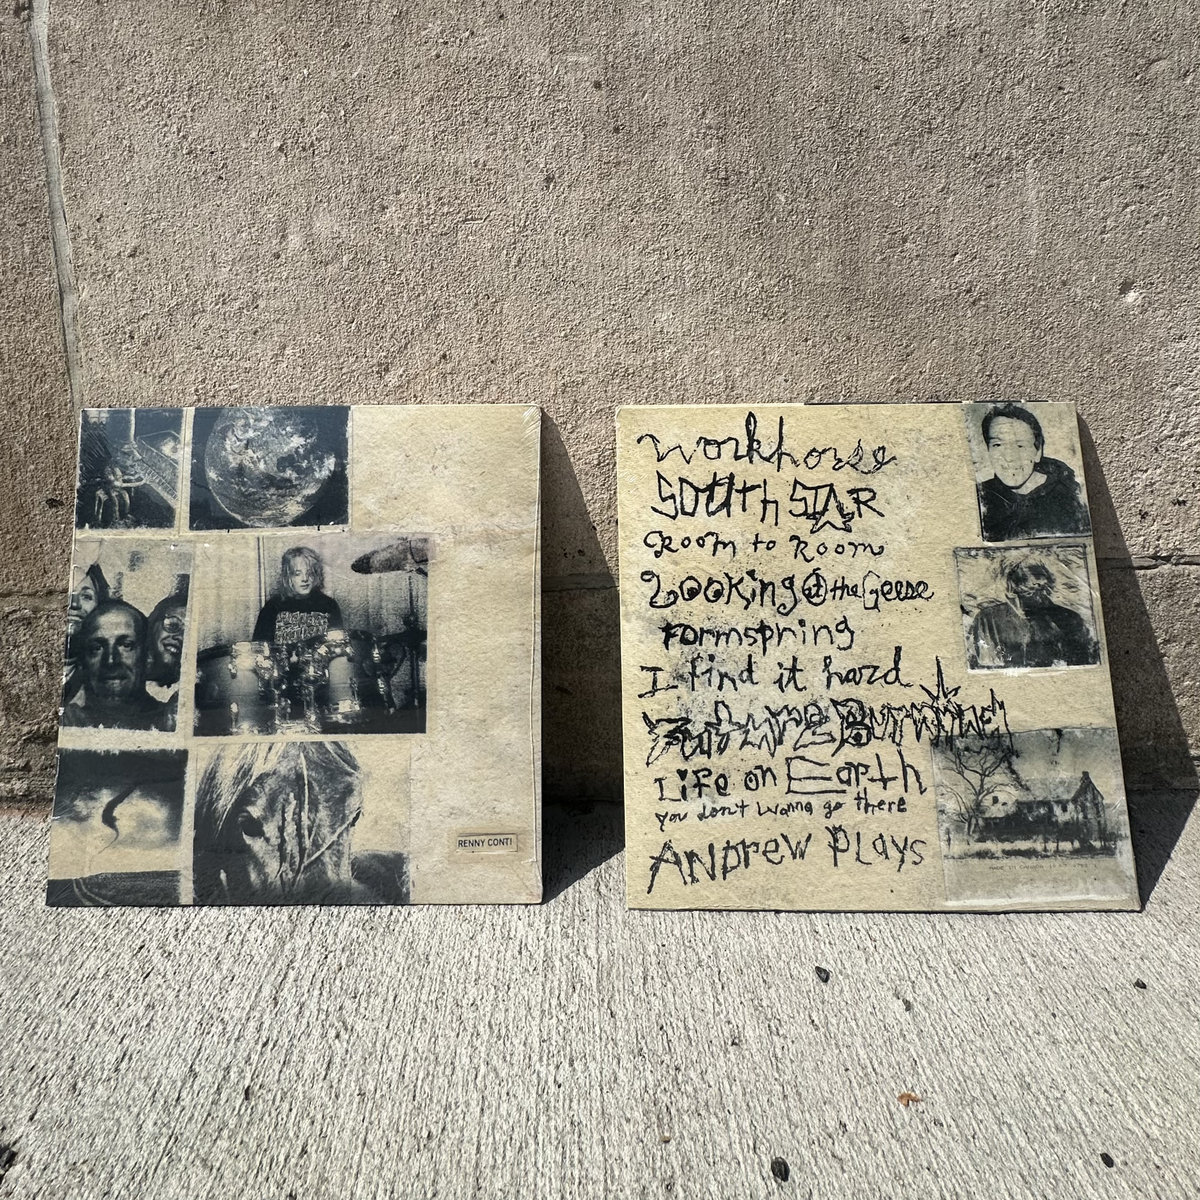 RENNY CONTI
Workhorse
SOUTH STAR
Room to Room
Looking at the Geese
Formspring
I find it hard
Future Burnwhel
Life on Earth
you don't wanna go there
ANDREW PLAYS